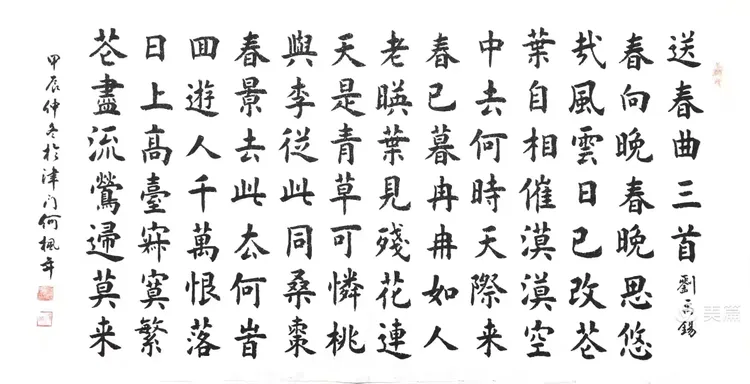 送春曲三首 劉禹錫
春向晚春晚思悠
哉風雲日已改芲
葉自相催漠漠空
中去何時天際来
春已暮冉冉如人
老暎葉見殘花連
天是青草可憐桃
與李從此同桑棗
春景去此厺何旹
囬遊人千萬恨落
日上高臺寂寞繁
芲盡流鶯歸莫来
甲辰仲冬於津门何楓年
美篇